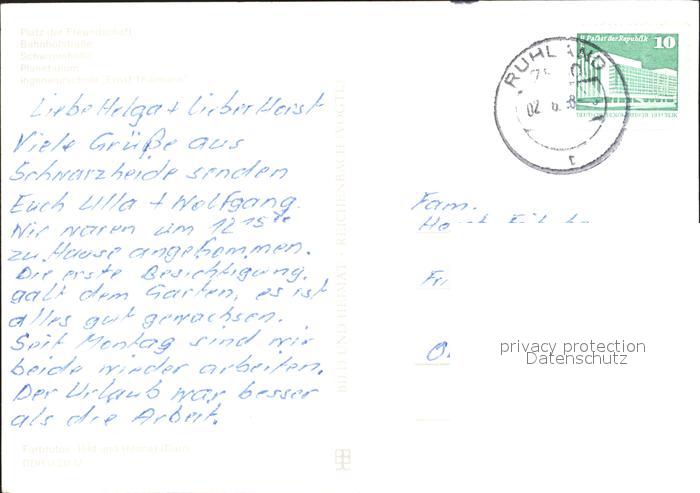 Platz der Freundschaft
Bahnhofstraße
Schwimmhalle
Planetarium
Ingenieurschule "Ernst Thälmann"
Liebe Helga + Lieber Horst
Viele Grüße aus
Schwarzheide senden
Euch Ulla + Wolfgang.
Wir waren um 12 15
zu Hause angekommen.
Die erste Besichtigung,
galt dem Garten, es ist
alles gut gewachsen.
Seit Montag sind wir
beide wieder arbeiten.
Der Urlaub war besser
als die Arbeit.
BILD UND HEIMAT · REICHENBACH
Palast der Republik 10
RUHLAND
02. 6.
Fam.
privacy protection
Datenschutz